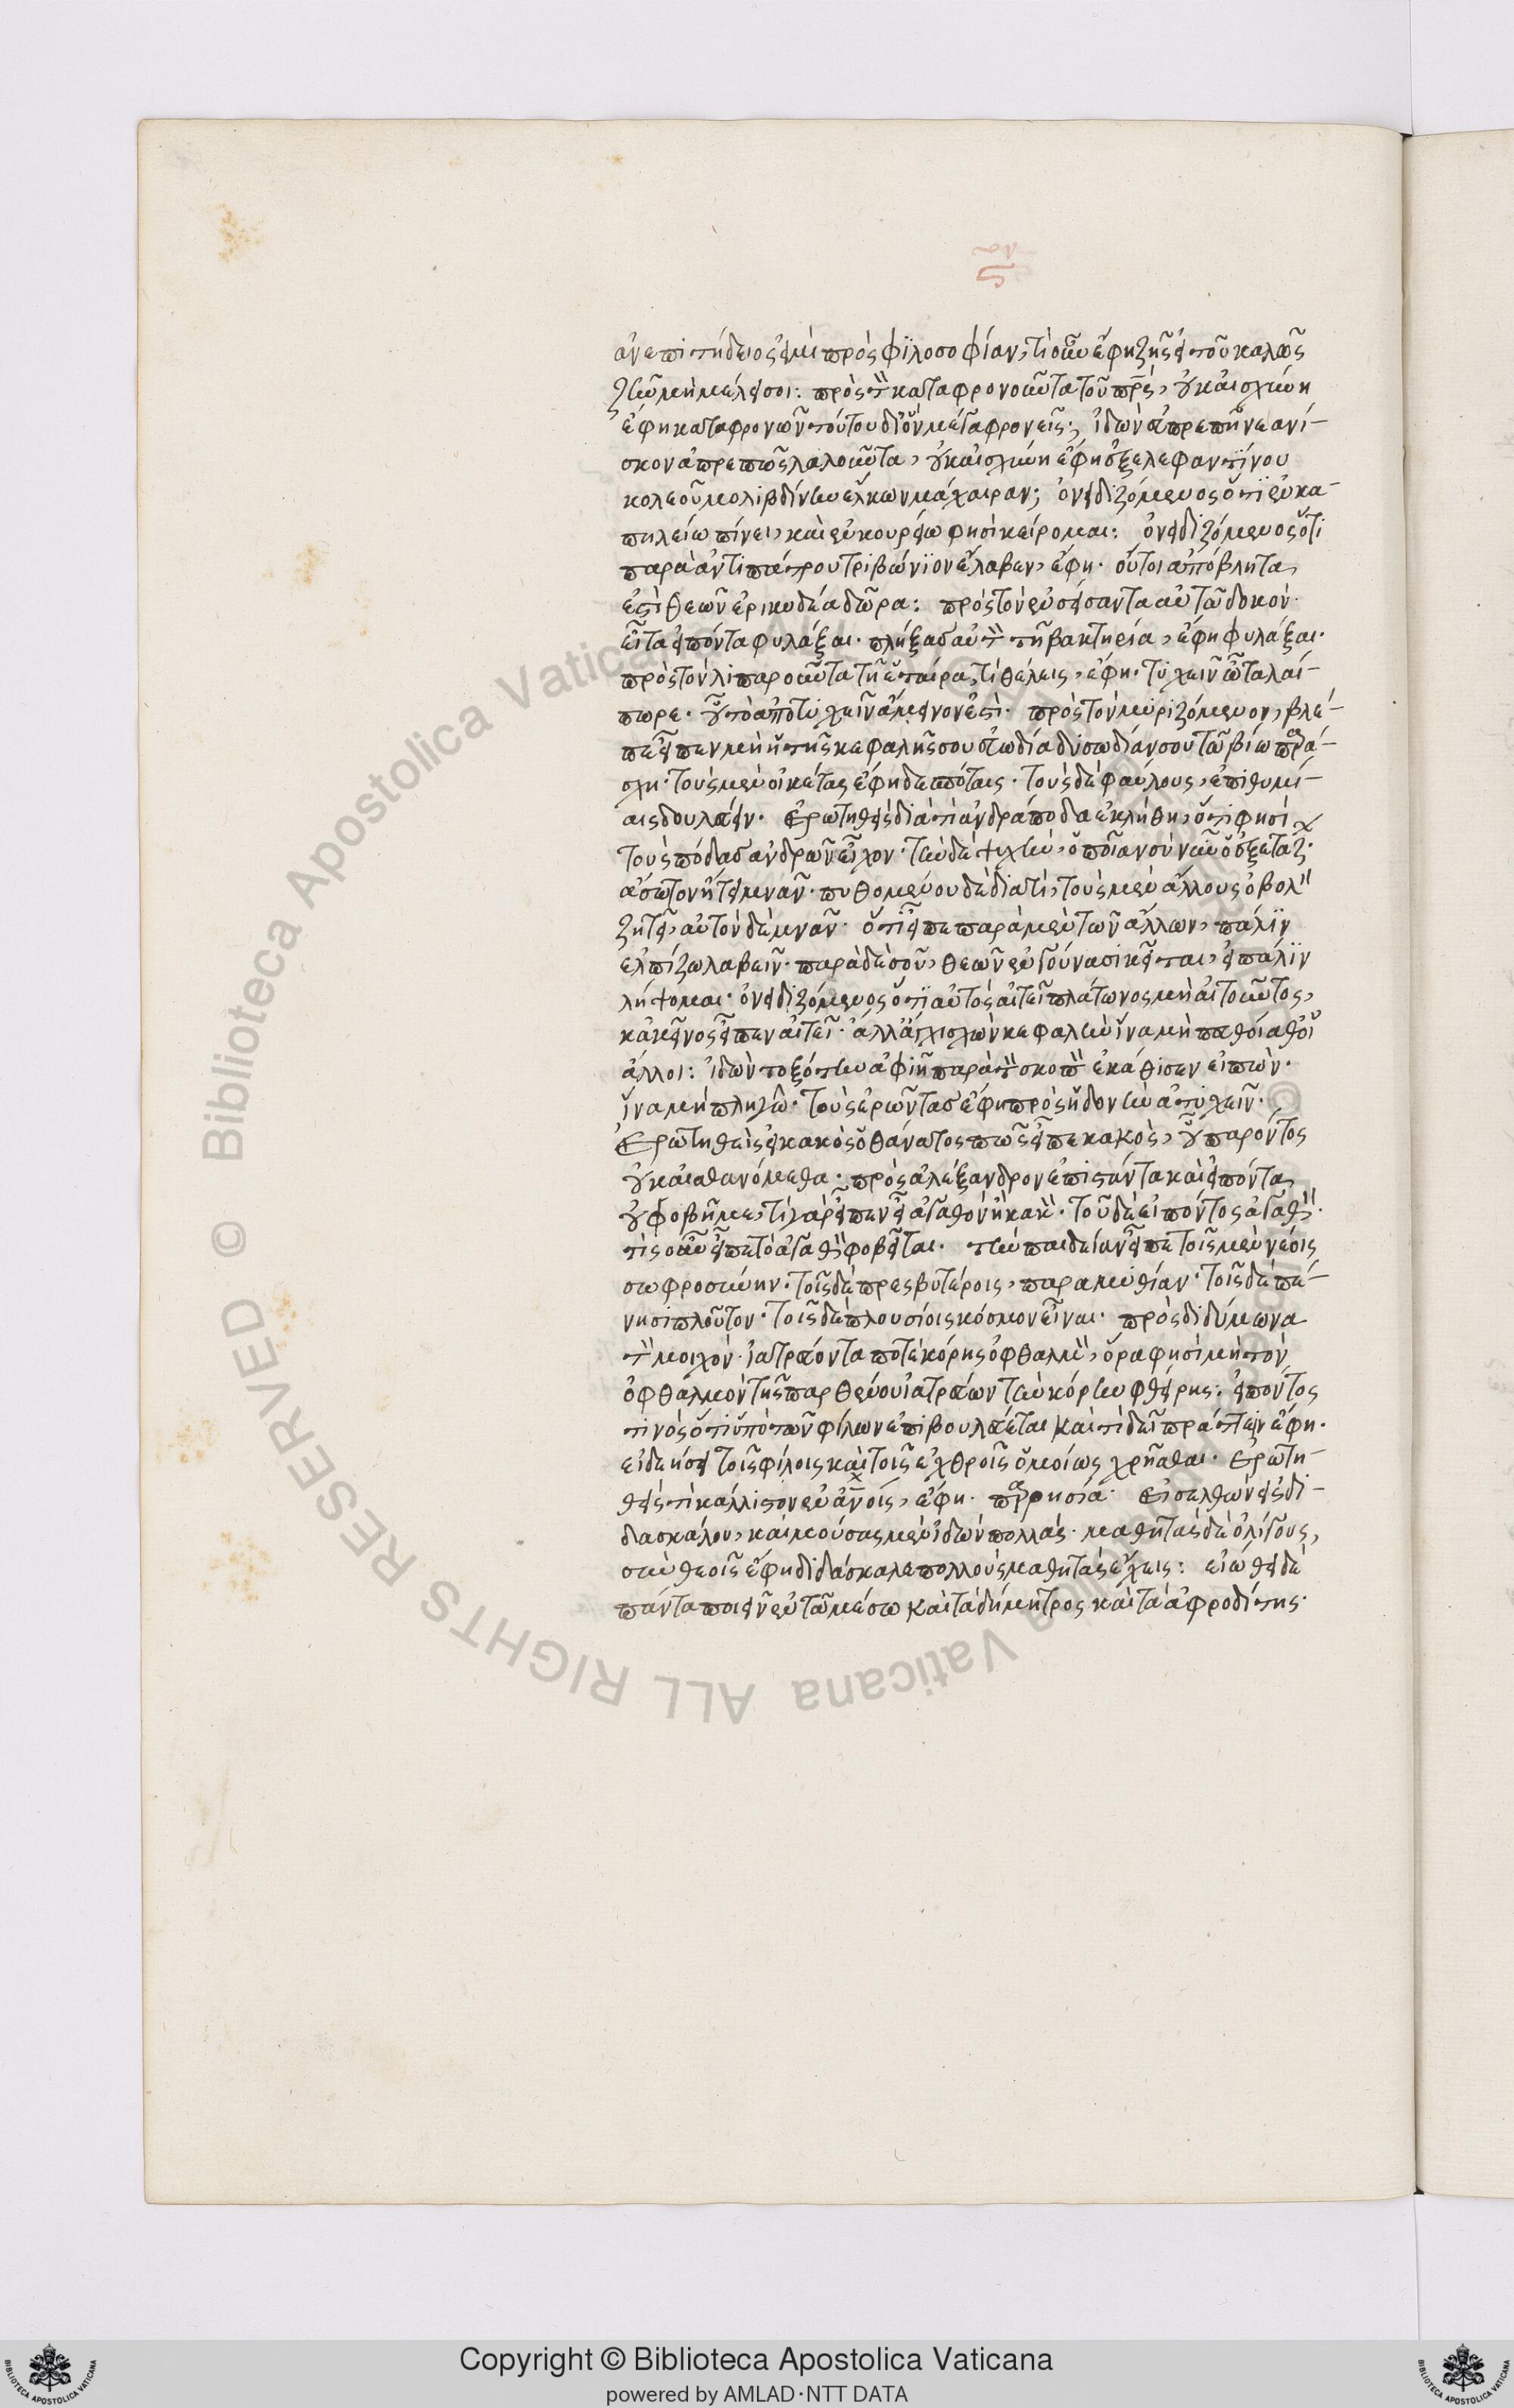 ἀνεπιτήδειος εἰμὶ πρὸς φϊλοσοφίαν, τί οὖν ἔφη ζῆς εἰ τοῦ καλῶς
ζῆν μὴ μέλει σοι: πρὸς τὸν καταφρονοῦντα τοῦ πρς, οὐκ αἰσχύνη
ἔφη καταφρονῶν τούτου δι' ὃν μέγα φρονεῖς; ἰδὼν ἀπρεπῆ νεανί-
σκον ἀπρεπῶς λαλοῦντα, οὐκ αἰσχύνη ἔφη ἐξ ἐλεφαντίνου
κολεοῦ μολιβδίνην ἕλκων μάχαιραν; ὀνειδιζόμενος ὅτϊ ἐν κα-
πηλείω πίνει, καὶ ἐν κουρείω φησὶ κείρομαι: ὀνειδιζόμενος ὅτι
παρὰ ἀντιπάτρου τριβώνϊον ἔλαβεν, ἔφη. οὔτοι ἀπόβλητα
ἐστὶ θεῶν ἐρικυδέα δῶρα: πρὸς τὸν ἐνσείσαντα αὐτῶ δοκὸν.
εἶτα εἰπόντα φυλάξαι. πλήξας αὐτὸν τῆ βακτηρία, ἔφη φυλάξαι.
πρὸς τὸν λιπαροῦντα τῆ ἑταίρα, τί θέλεις, ἔφη. τυχεῖν ὦ ταλαί-
πωρε. οὗ τὸ ἀποτυχεῖν ἄμεινον ἐστὶ. πρὸς τὸν μυριζόμενον, βλέ-
πε εἶπεν μὴ ἡ τῆς κεφαλῆς σου εὐωδία δυσωδίαν σου τῶ βίω παρά-
σχη. τοὺς μὲν οἰκέτας ἔφη δεσπόταις. τοὺς δὲ φαύλους, ἐπιθυμί-
αις δουλεύειν. ἐρωτηθεὶς διὰ τί ἀνδράποδα ἐκλήθη, ὅτι φησὶ
τοὺς πόδας ἀνδρῶν εἶχον. τὴν δὲ ψυχὴν, ὁποίαν σὺ νῦν ὁ ἐξετάζ.
ἄσωτον ἤτει μνᾶν. πυθομένου δὲ διατί, τοὺς μὲν ἄλλους ὀβολὸν
ζητεῖ, αὐτὸν δὲ μνᾶν. ὅτϊ εἶπε παρὰ μὲν τῶν ἄλλων, πάλϊν
ἐλπίζω λαβεῖν. παρὰ δὲ σοῦ, θεῶν ἐν γούνασι κεῖται, εἰ πάλϊν
λήψομαι. ὀνειδιζόμενος ὅτϊ αὐτὸς αἰτεῖ πλάτωνος μὴ αἰτοῦντος,
κἀκεῖνος εἶπεν αἰτεῖ. ἀλλ' ἄγχι σχὼν κεφαλὴν ἵνα μὴ πευθοίαθ' οἱ
ἄλλοι: ἰδὼν τοξότην ἀφυῆ παρὰ τὸν σκοπὸν ἐκάθισεν εἰπὼν.
ἵνα μὴ πληγῶ. τοὺς ἐρῶντας ἔφη πρὸς ἡδονὴν ἀτυχεῖν.
Ἐρωτηθεὶς εἰ κακὸς ὁ θάνατος πῶς εἶπε κακὸς, οὗ παρόντος
οὐκ αἰσθανόμεθα. πρὸς ἀλέξανδρον ἐπιστάντα καὶ εἰπόντα,
οὐ φοβῆ με, τί γὰρ εἶπεν εἶ ἀγαθὸν ἢ κακὸν. τοῦ δὲ εἰπόντος ἀγαθὸν.
τίς οὖν εἶπε τὸ ἀγαθὸν φοβεῖται. τὴν παιδείαν εἶπε τοῖς μὲν νέοις
σωφροσύνην. τοῖς δὲ πρεσβυτέροις, παραμυθίαν. τοῖς δὲ πέ-
νησι πλοῦτον. τοῖς δὲ πλουσίοις κόσμον εἶναι. πρὸς διδύμωνα
τὸν μοιχὸν. ἰατρεύοντα ποτὲ κόρης ὀφθαλμὸν, ὅρα φησὶ μὴ τὸν
ὀφθαλμὸν τῆς παρθένου ἰατρεύων τὴν κόρην φθείρης: εἰπόντος
τινὸς ὅτι ὑπὸ τῶν φίλων ἐπιβουλεύεται καὶ τί δεῖ πράττειν ἔφη.
εἰ δεήσει τοῖς φίλοις καὶ τοῖς ἐχθροῖς ὁμοίως χρῆσθαι. Ἐρωτη-
θεὶς τί κάλλιστον ἐν ἀνοις, ἔφη. παρρησία. Εἰσελθὼν εἰς δι-
δασκάλου, καὶ μούσας μὲν ἰδὼν πολλὰς. μαθητὰς δὲ ὀλίγους,
σὺν θεοῖς ἔφη διδάσκαλε πολλοὺς μαθητὰς ἔχεις: εἰώθει δὲ
πάντα ποιεῖν ἐν τῶ μέσω καὶ τὰ δήμητρος καὶ τὰ ἀφροδίτης.
© Biblioteca Apostolica Vaticana ALL RIGHTS RESERVED
Copyright © Biblioteca Apostolica Vaticana
powered by AMLAD·NTT DATA
BIBLIOTECA APOSTOLICA VATICANA
BIBLIOTECA APOSTOLICA VATICANA